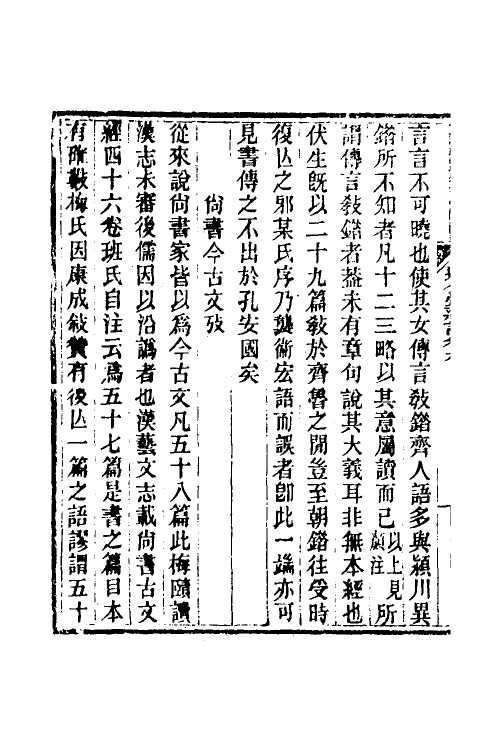 言言不可曉也使其女傳言敎鍇齊人語多與潁川異
鍇所不知者凡十二三略以其意屬讀而已以上見顏注所
謂傳言敎鍇者葢未有章句說其大義耳非無本經也
伏生旣以二十九篇敎於齊魯之閒豈至朝鍇往受時
復亾之邪某氏序乃襲衛宏語而誤者卽此一端亦可
見書傳之不出於孔安國矣
尙書今古文攷
從來說尙書家皆以爲今古文凡五十八篇此梅賾讀
漢志未審後儒因以沿譌者也漢藝文志載尙書古文
經四十六卷班氏自注云爲五十七篇是書之篇目本
有確數梅氏因康成敍贊有後亾一篇之語謬謂五十